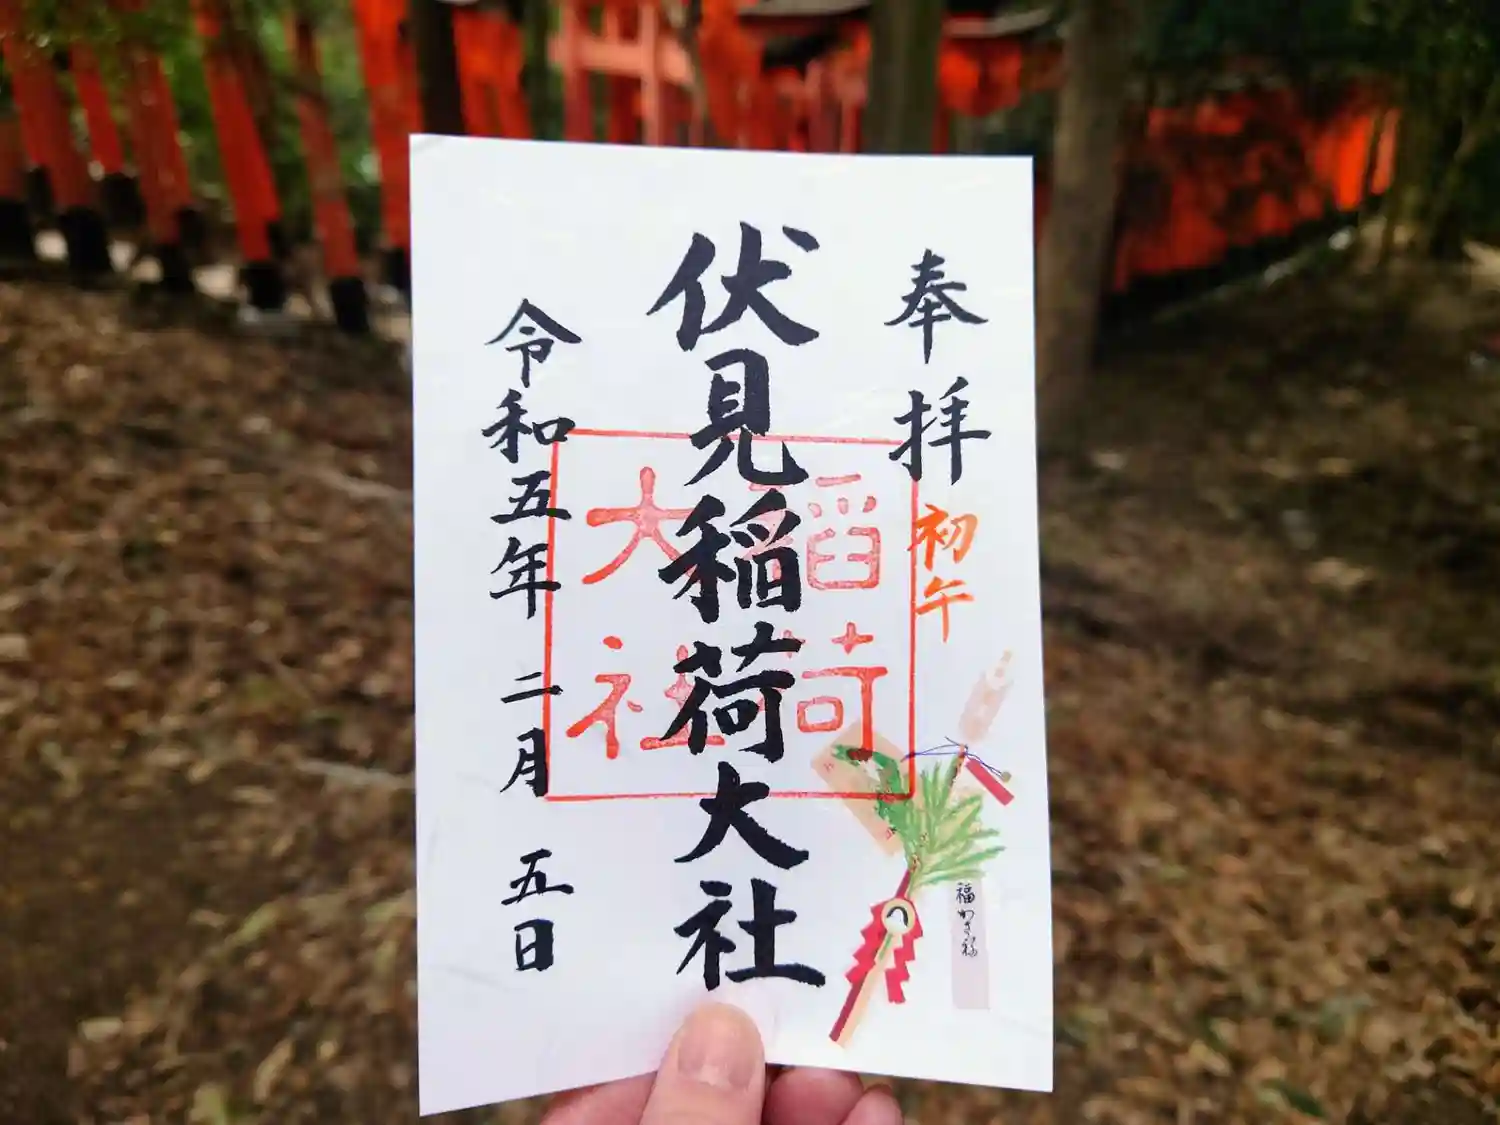 奉拝
初午
伏見稲荷大社
稲荷
大社
令和五年 二月 五日
福かさ福